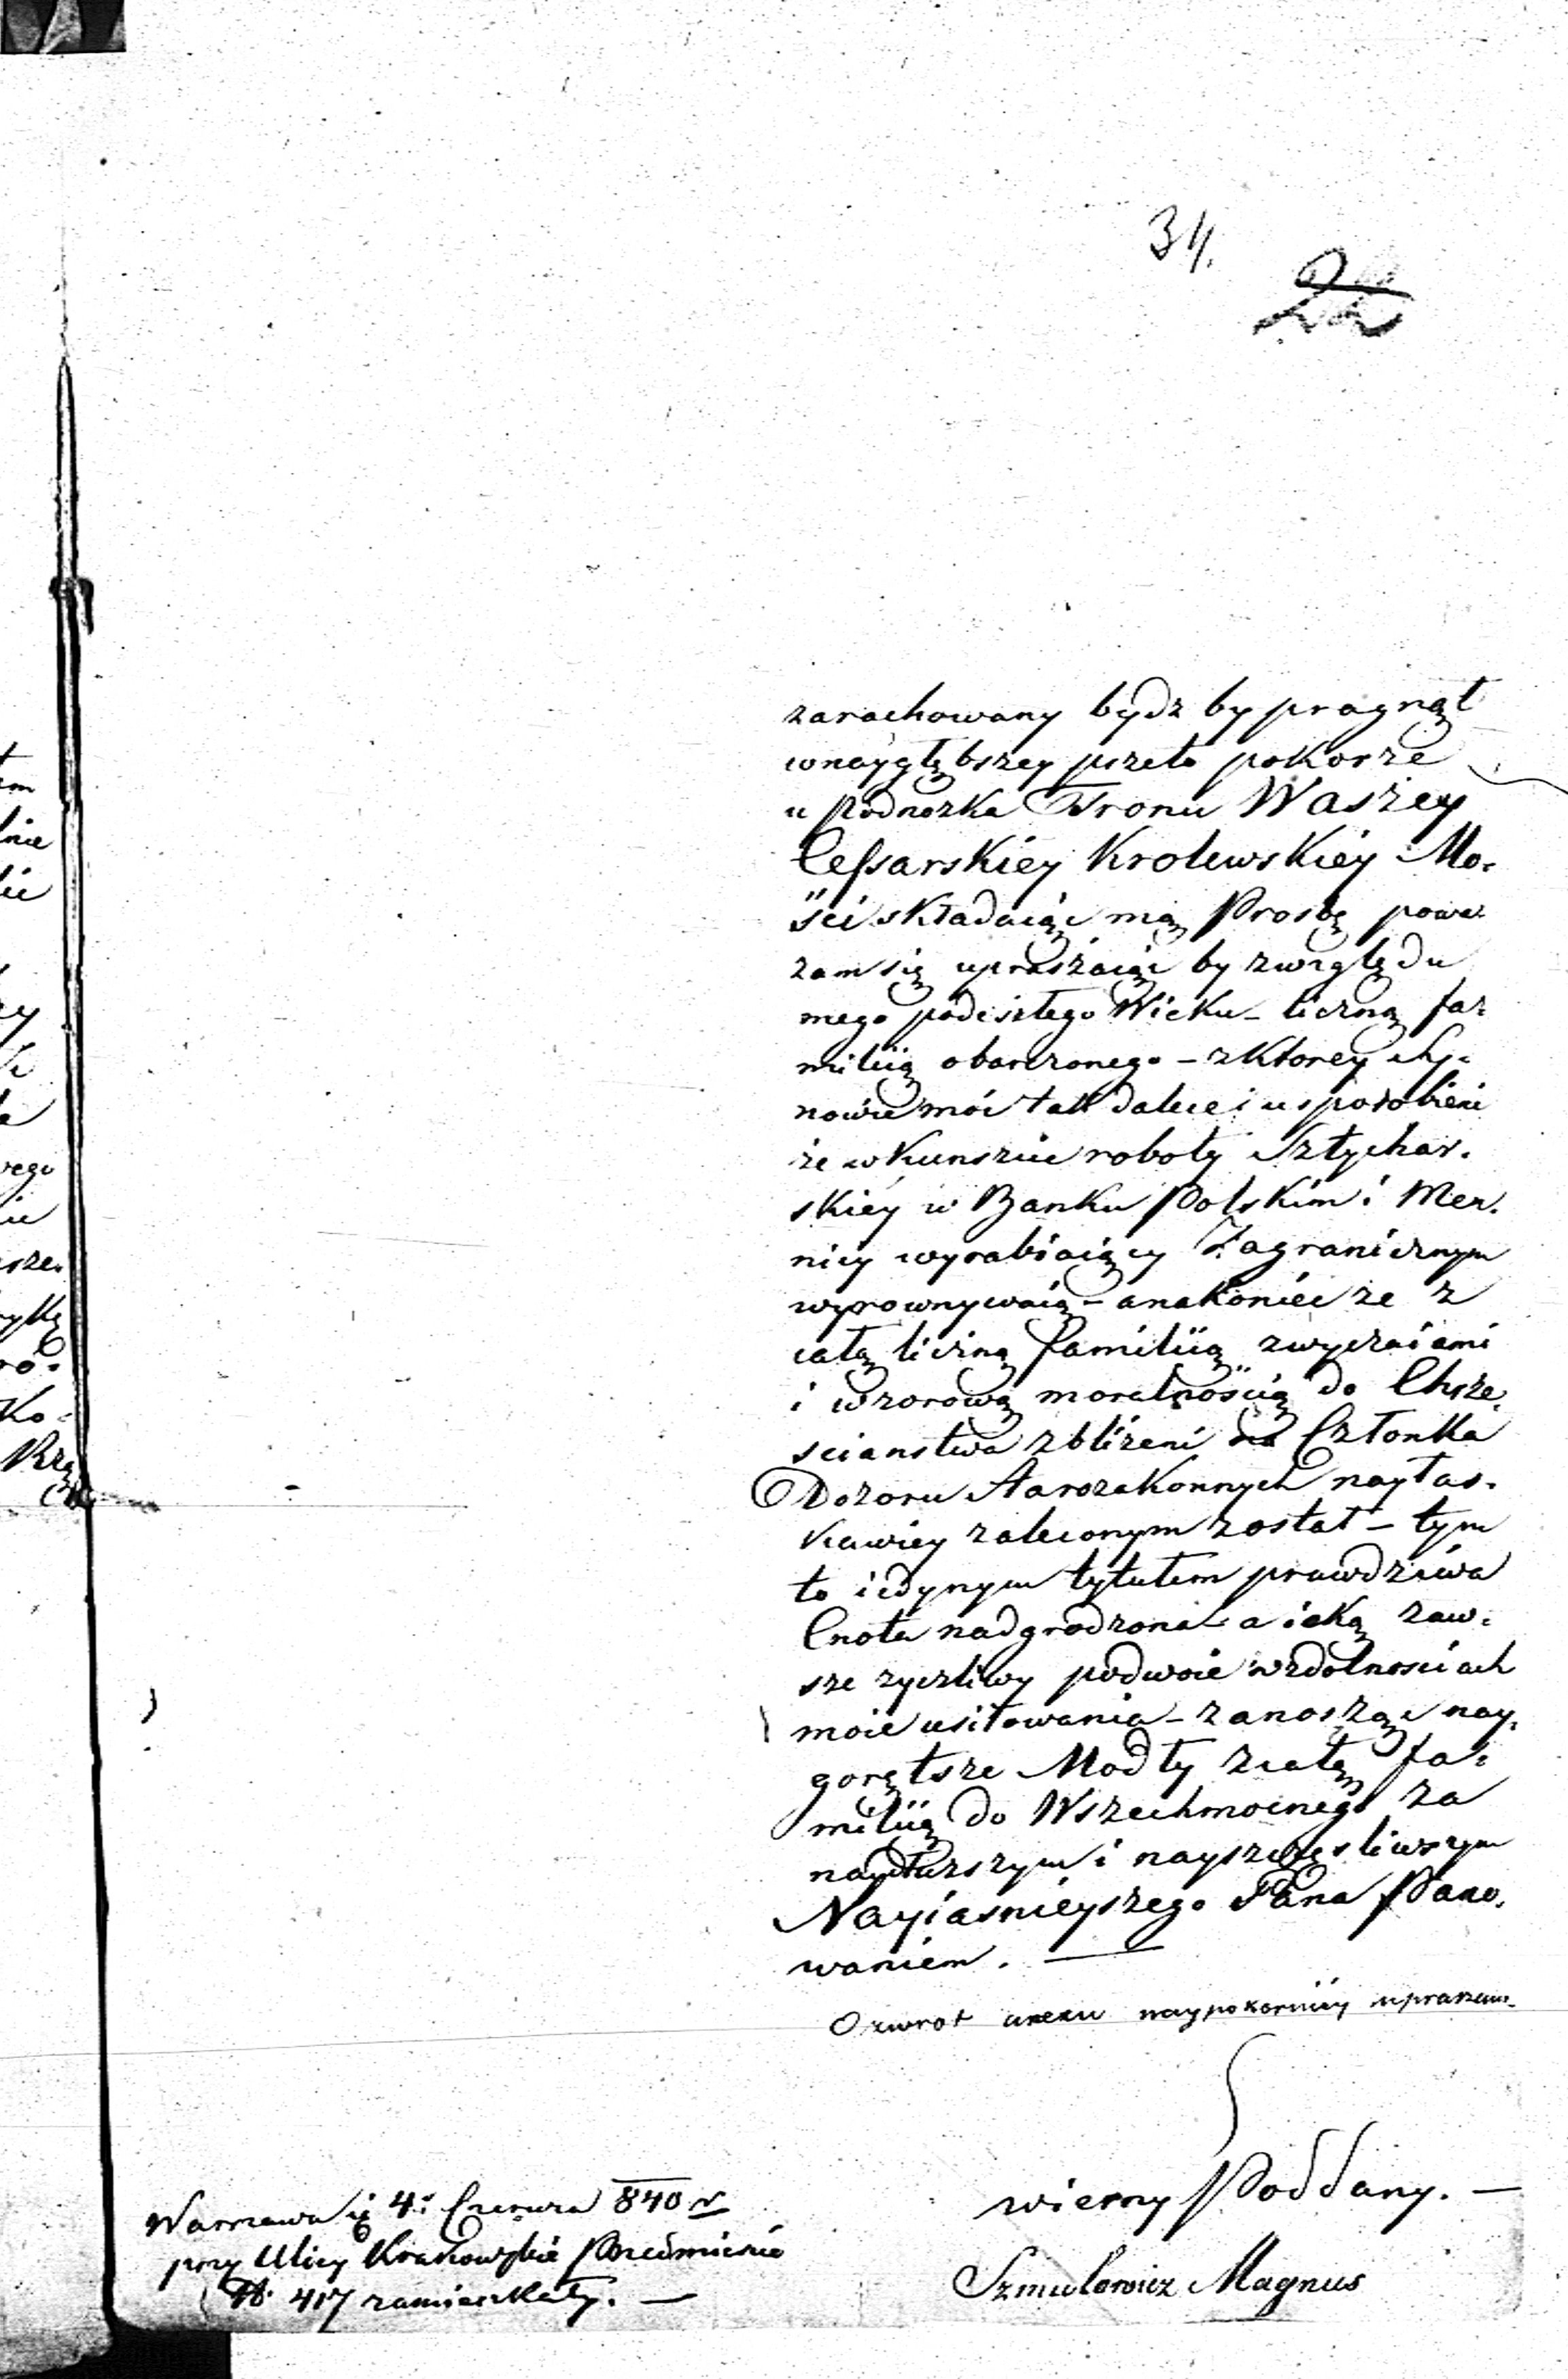 34.
zarachowany bydz by pragnął
w naygłębszey przeto pokorze
u podnozka Tronu Waszey
Cessarskiéy Krolewskiéy Mo-
ści składaiąc mą Prosbę powa-
zam się upraszaiąc by zwzględu
mego podeszłego Wieku – liczną fa-
miliią obarczonego – z ktorey Sy-
nowie moi tak dalece i usposobieni
że w kunszcie roboty Sztychar-
skiéy w Banku Polskim i Men-
nicy wyrabiaiący Zagranicznym
wyrownywaią – a nakoniec ze z
całą liczną familiią zwyczaiami
i wzorową moralnością do Chrze-
scianstwa zbliżeni na Członka
Dozoru Starozakonnych nayłas-
kawiey zaleconym został – tym
to iedynym tytułem prawdziwa
Cnota nadgrodzona a iaką zaw-
sze zyczliwy podwoie w zdolnosciach
moie usiłowania – zanosząc nay-
gorętsze Modły z całą fa-
miliią do Wszechmocnego za
naydłuzszym i nayszczęsliwszym
Nayiasnieyszego Pana Pano-
waniem. —
O zwrot anexu naypokorniéy upraszam
wierny Poddany. —
Szmulowicz Magnus
Warszawa d. 4. Czerwca 840 r
przy Ulicy Krakowskie Przedmiescie
N. 417 zamieszkały. —